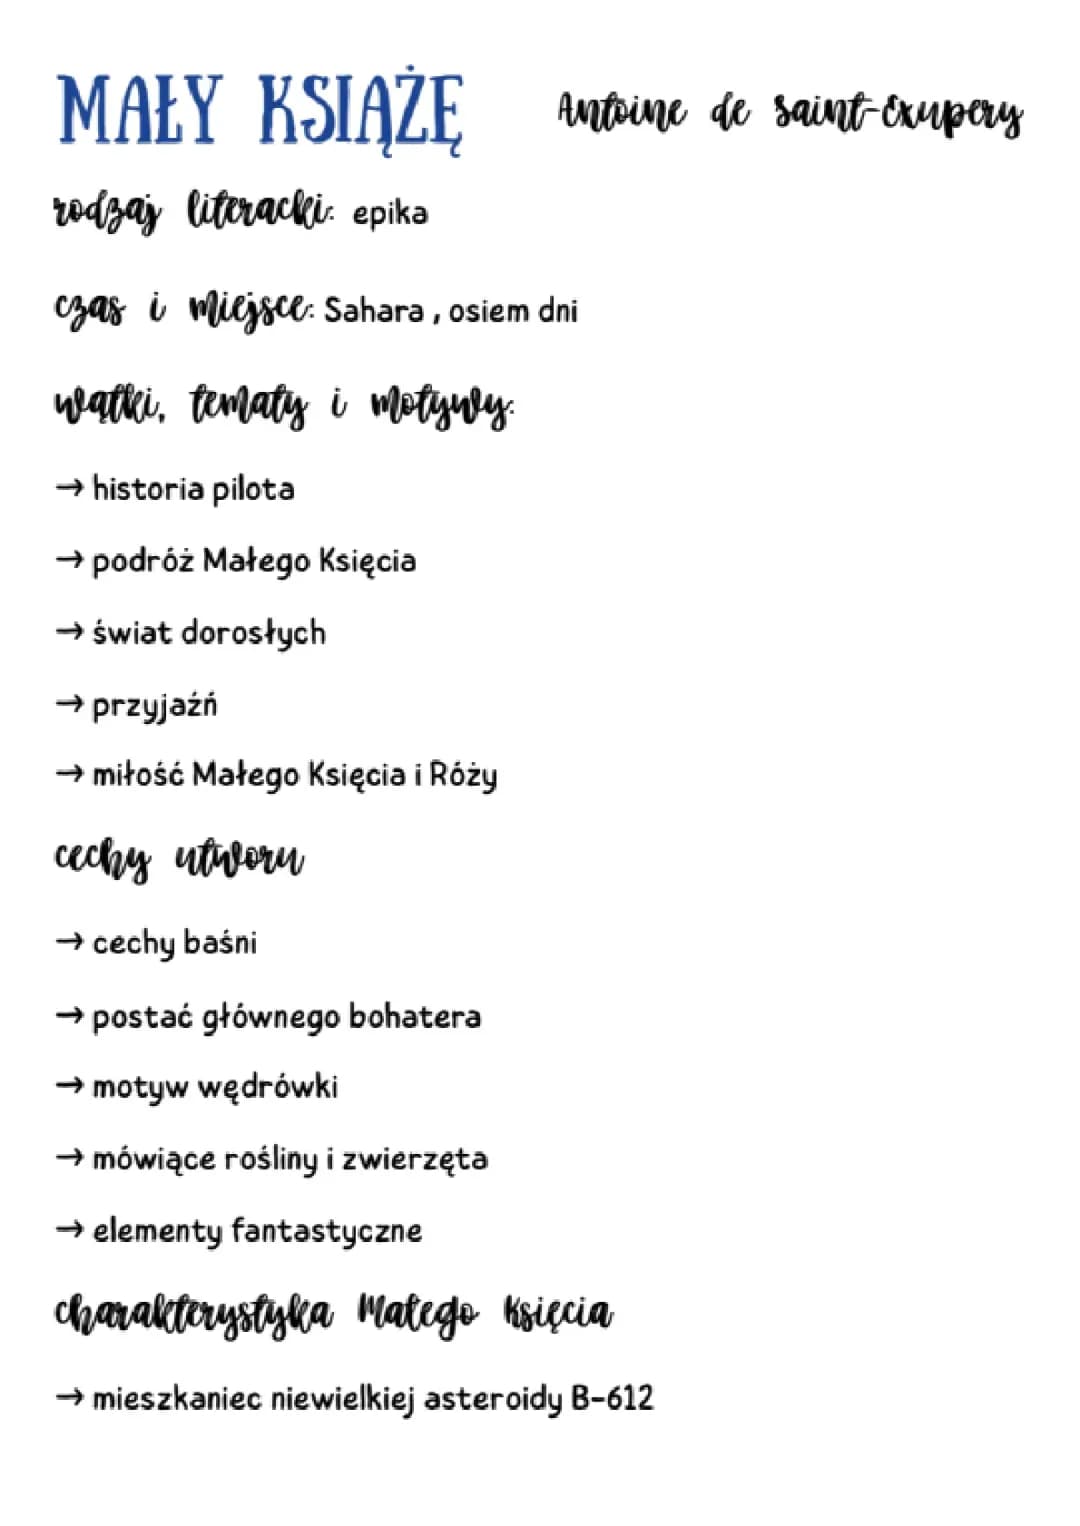 MAŁY KSIĄŻĘ Antoine de Saint-Exupery
rodzaj literacki: epika
czas i miejsce: Sahara, osiem dni
wątki, tematy i motywy:
→ historia pilota
→ podróż Małego Księcia
→ świat dorosłych
→ przyjaźń
→ miłość Małego Księcia i Róży
cechy utworu
→ cechy baśni
→ postać głównego bohatera
→ motyw wędrówki
→ mówiące rośliny i zwierzęta
→ elementy fantastyczne
charakterystyka Małego Księcia
→ mieszkaniec niewielkiej asteroidy B-612